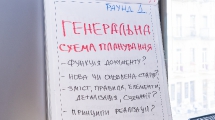 РАУНД 1
ГЕНЕРАЛЬНА
СХЕМА ПЛАНУВАННЯ
- ФУНКЦІЯ ДОКУМЕНТУ?
- НОВА ЧИ ОНОВЛЕНА СТАРА?
ЗМІСТ, ПРАВИЛА, ЕЛЕМЕНТИ,
ДЕТАЛІЗАЦІЯ,
- ПРИНЦИПИ РЕАЛІЗАЦІЇ?